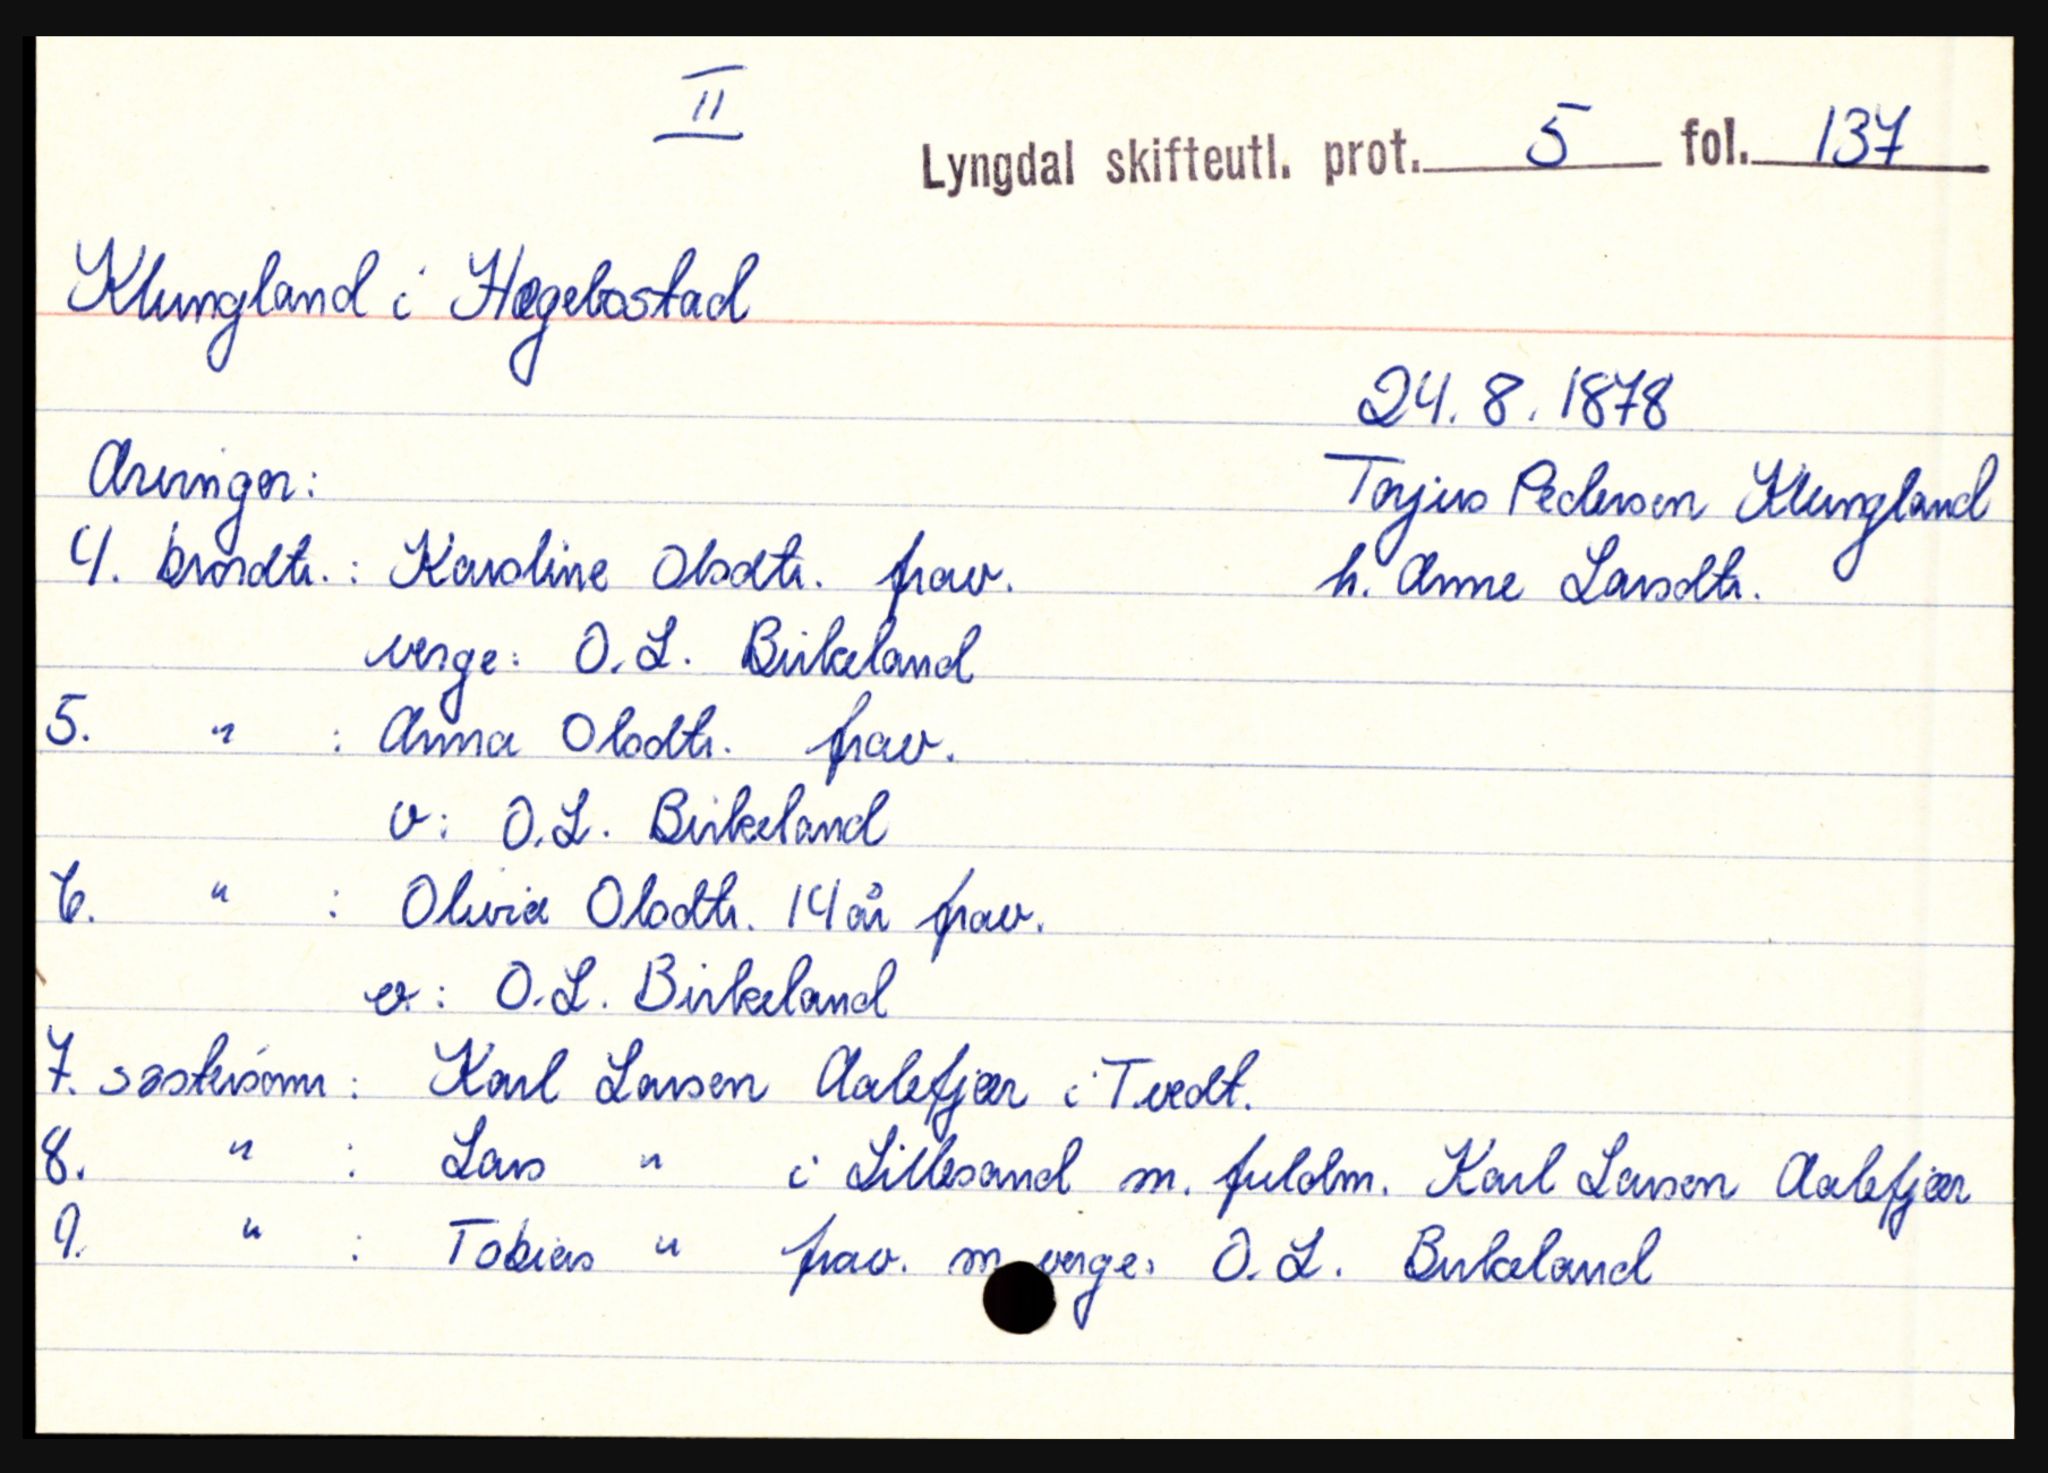 II
Lyngdal skifteutl. prot. 5 fol. 137
Klungland i Hægebostad
24.8.1878
Arvinger:
Torjus Pedersen Klungland
h. Anne Larsdtr.
4. brordtr.: Karoline Olsdtr. frav.
verge: O.L. Birkeland
5. " : Anna Olsdtr. frav.
v: O.L. Birkeland
6. " : Olivia Olsdtr. 14 år frav.
v: O.L. Birkeland
7. søstersønn: Karl Larsen Aalefjær i Tvedt.
8. " : Lars " i Lillesand m. fuldm. Karl Larsen Aalefjær
9. " : Tobias " frav. m verge: O.L. Birkeland